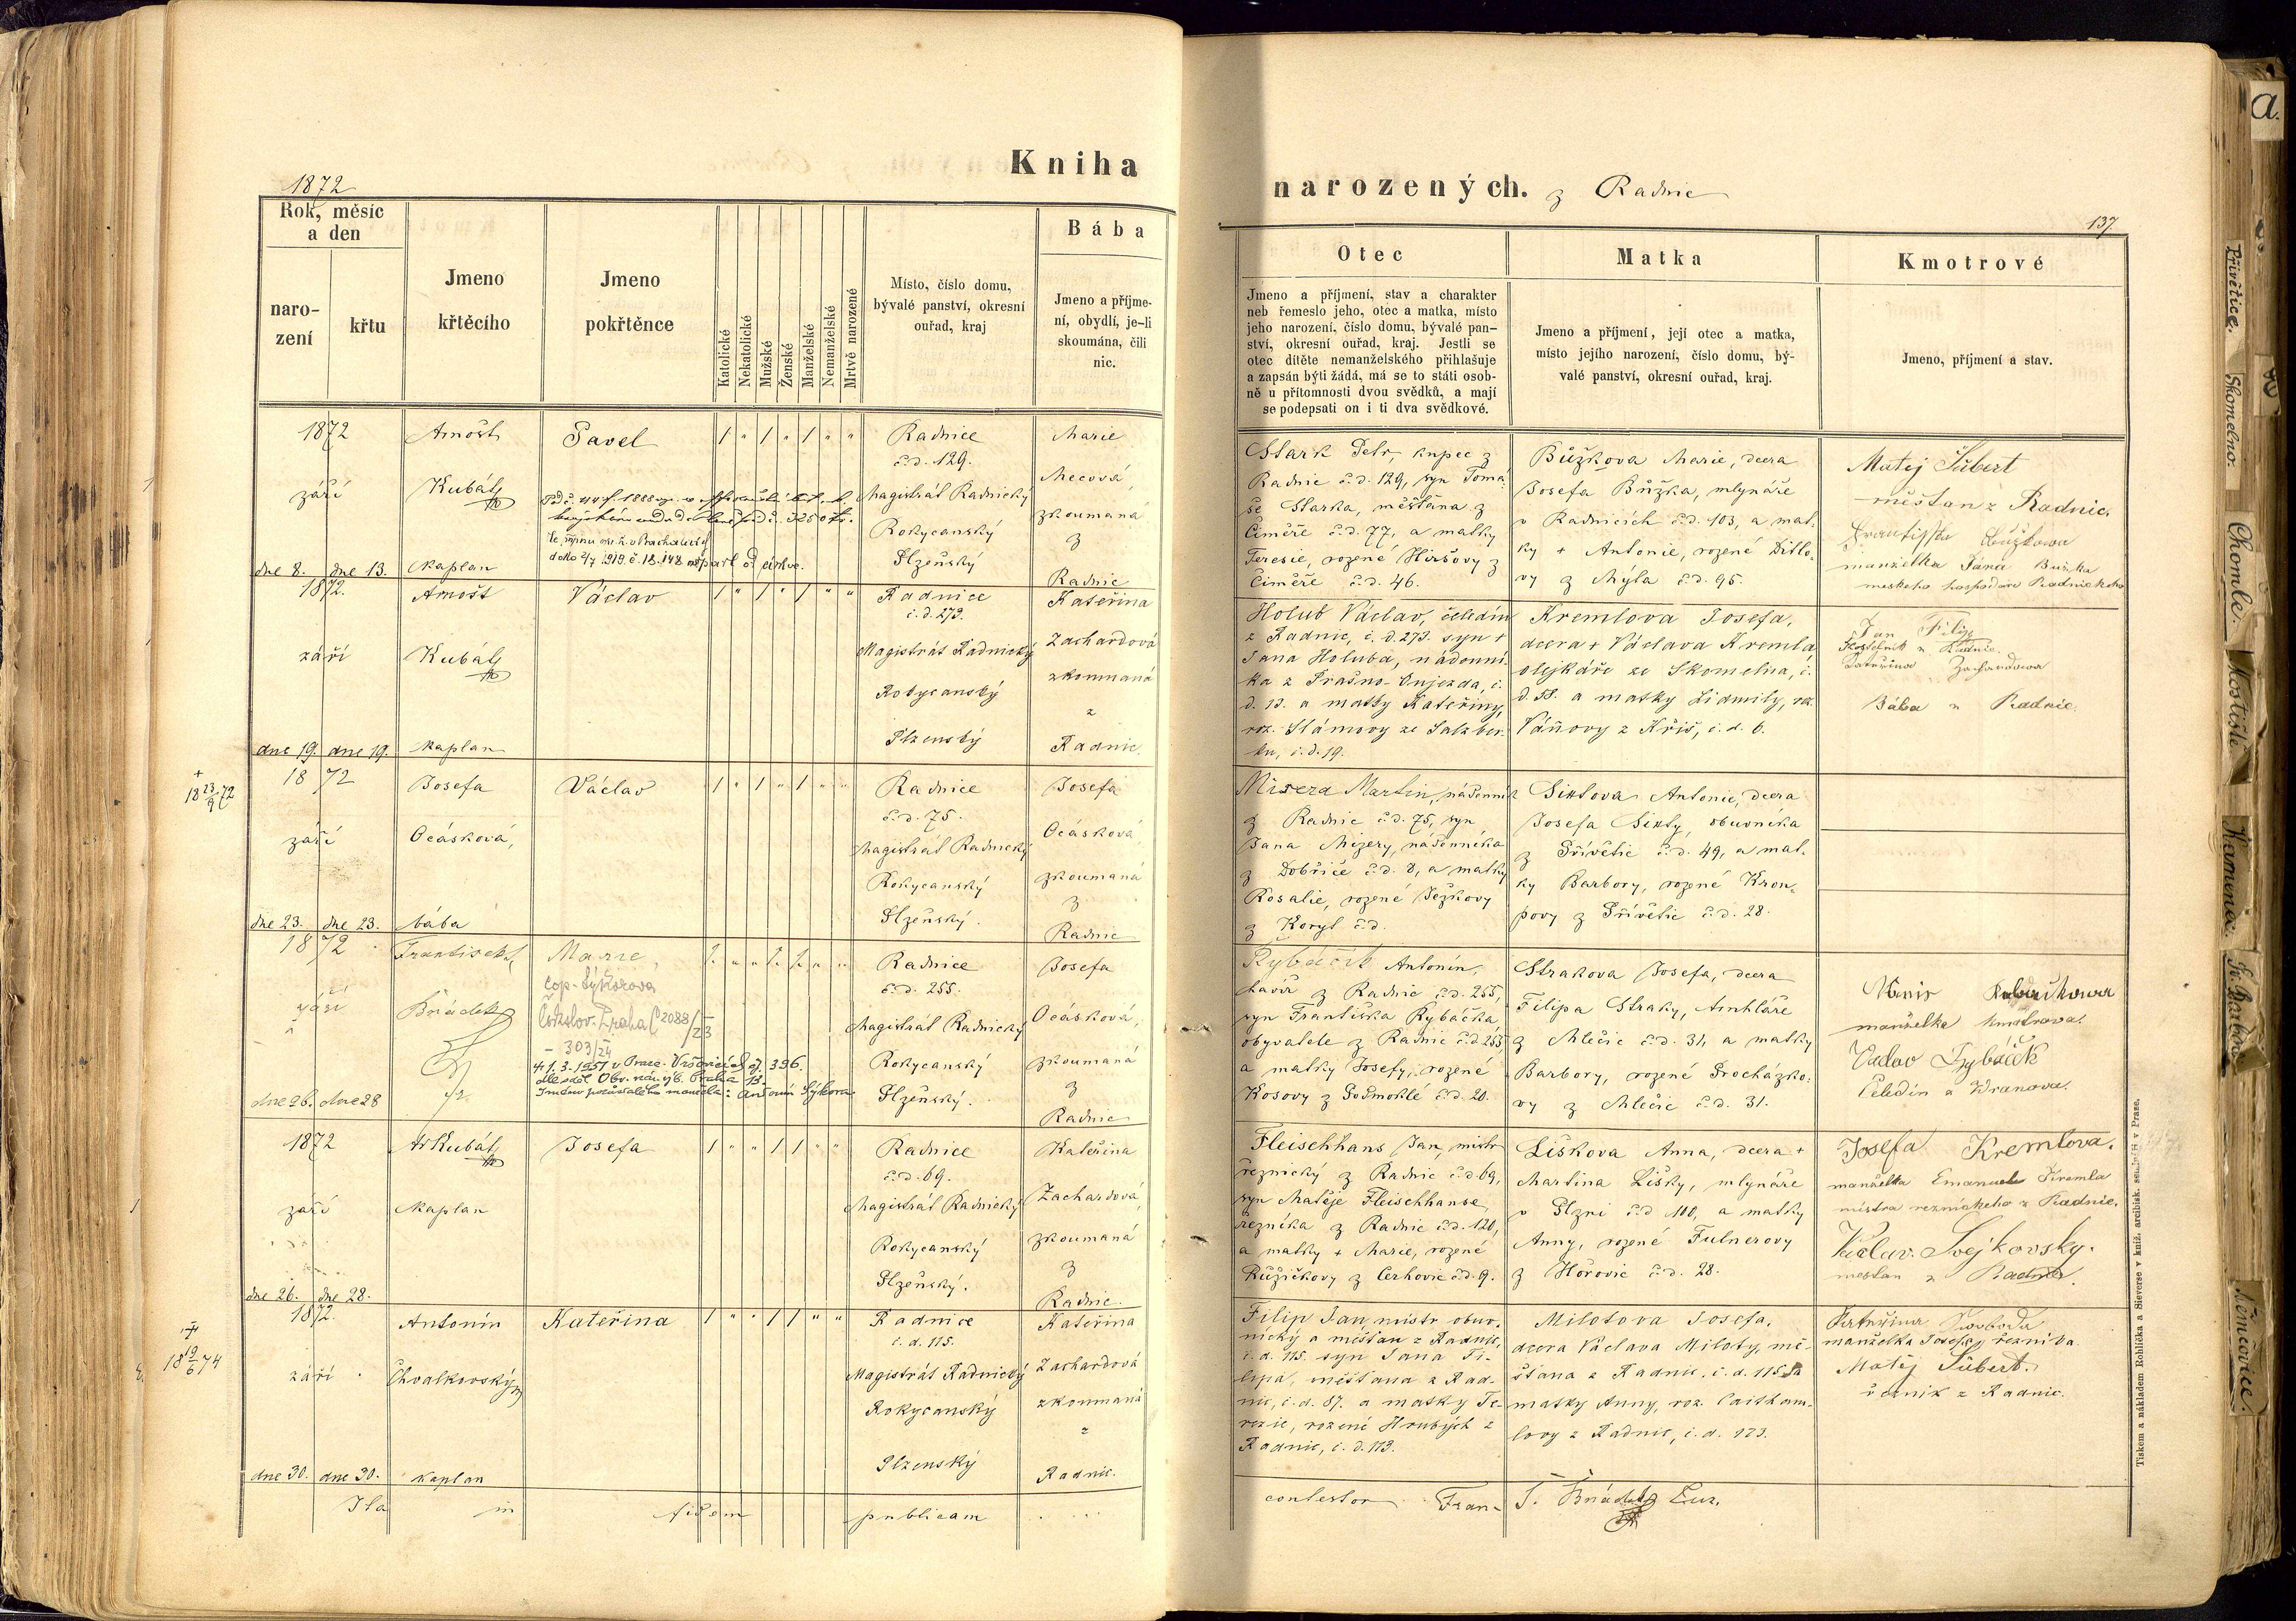 Kniha
narozených. z Radnic
1872
137
Rok, měsíc
a den
naro-
zení
křtu
Jmeno
křtěcího
Jmeno
pokřtěnce
Katolické
Nekatolické
Mužské
Ženské
Manželské
Nemanželské
Mrtvě narozené
Místo, číslo domu,
bývalé panství, okresní
ouřad, kraj
Bába
Jmeno a příjme-
ní, obydlí, je-li
skoumána, čili
nic.
Otec
Jmeno a příjmení, stav a charakter
neb řemeslo jeho, otec a matka, místo
jeho narození, číslo domu, bývalé pan-
ství, okresní ouřad, kraj. Jestli se
otec dítěte nemanželského přihlašuje
a zapsán býti žádá, má se to státi osob-
ně u přítomnosti dvou svědků, a mají
se podepsati on i ti dva svědkové.
Matka
Jmeno a příjmení, její otec a matka,
místo jejího narození, číslo domu, bý-
valé panství, okresní ouřad, kraj.
Kmotrové
Jmeno, příjmení a stav.
1872
září
dne 8. dne 13.
Arnošt
Kubát
kaplan
Pavel
1 " 1 " 1 " "
Radnice
č.d. 129.
Magistrát Radnický
Rokycanský
Plzeňský
Marie
Mecová,
zkoumaná
z
Radnic
Stark Petr, kupec z
Radnic č.d. 129, syn Tomá-
še Starka, měšťana z
Čiměře č.d. 77, a matky
Teresie, rozené Hiršovy z
Čiměře č.d. 46.
Bůžkova Marie, dcera
Josefa Bůžka, mlynáře
v Radnicích č.d. 103, a mat-
ky + Antonie, rozené Ditlo-
vy z Mýta č.d. 95.
Matěj Šubert
měšťan z Radnic.
manželka Jana Bužka
1872.
září
dne 19. dne 19.
Arnošt
Kubát
kaplan
Václav
1 " 1 " 1 " "
Radnice
č.d. 273.
Magistrát Radnický
Rokycanský
Plzenský
Kateřina
Zachardová
zkoumaná
z
Radnic.
Holub Václav, čeledín
z Radnic, č.d. 273. syn +
Jana Holuba, nádenní-
ka z Prašno-Oujezda, č.
d. 13. a matky Kateřiny,
roz. Slámovy ze Salzber-
ku, č.d. 19.
Kremlova Josefa,
dcera + Václava Kremla
olejkáře ze Skomelna, č.
d. 58. a matky Lidmily, roz.
Váňovy z Kříš, č.d. 6.
Jan Filip
Kateřina Zachardowa
Bába z Radnic.
+
18 23/9 72
1872
září
dne 23. dne 23.
Josefa
Ocásková,
bába
Václav
1 " 1 " 1 " "
Radnice
č.d. 75.
Magistrát Radnický
Rokycanský
Plzeňský.
Josefa
Ocásková,
zkoumaná
z
Radnic
Misera Martin, nádenník
z Radnic č.d. 75, syn
Jana Mizery, nádenníka
z Dobříče č.d. 8, a matky
Rosalie, rozené Ježkovy
z Koryt č.d.
Sixtova Antonie, dcera
Josefa Sixty, obuvníka
z Přívětic č.d. 49, a mat-
ky Barbory, rozené Kron-
povy z Přívětic č.d. 28.
1872
září
dne 26. dne 28
František
Bnádek
Marie,
cop. Sýkorova
Českslov. Praha C 2088/23
- 303/24
+ 1.3.1951 v Praze - Vršovicích čj. 396.
dle sděl. Obv. nár. výb. Praha 13.
Jméno pozůstalého manžela: Antonín Sýkora
1. " " 1. 1. " "
Radnice
č.d. 255.
Magistrát Radnický
Rokycanský
Plzeňský.
Josefa
Ocásková,
zkoumaná
z
Radnic
Rybáčik Antonín,
havíř z Radnic č.d. 255,
syn Františka Rybáčka
obyvatele z Radnic č.d. 253
a matky Josefy, rozené
Kosovy z Podmoklé č.d. 20.
Strakova Josefa, dcera
Filipa Straky, truhláře
z Mlečic č.d. 31, a matky
Barbory, rozené Procházko-
vy z Mlečic č.d. 31.
manželka
Václav Rybáčik
Čeledín z Wranova.
1872
září
dne 26. dne 28.
Ar Kubát
kaplan
Josefa
1 " " 1 1 " "
Radnice
č.d. 69.
Magistrát Radnický
Rokycanský
Plzeňský.
Kateřina
Zachardová,
zkoumaná
z
Radnic.
Fleischhans Jan, mistr
řeznický z Radnic č.d. 69,
syn Matěje Fleischhanse
řezníka z Radnic č.d. 120,
a matky + Marie, rozené
Růžičkovy z Cerhovic č.d. 9.
Liškova Anna, dcera +
Martina Lišky, mlynáře
v Plzni č.d. 100, a matky
Anny, rozené Fulnerovy
z Hořovic č.d. 28.
Josefa Kremlova.
manželka Emanuele Kremla
mistra reznickeho z Radnic.
Václav Svejkovsky.
mestan z Radnic.
+
18 19/6 74
1872.
září
dne 30. dne 30.
Antonín
Chvalkovský
kaplan
Kateřina
1 " " 1 1 " "
Radnice
č.d. 115.
Magistrát Radnický
Rokycanský
Plzenský
Kateřina
Zachardová
zkoumaná
z
Radnic.
Filip Jan, mistr obuv-
nický a měšťan z Radnic,
č.d. 115. syn Jana Fi-
lipa, měšťana z Rad-
nic, č.d. 87. a matky Te-
rezie, rozené Hrubých z
Radnic, č.d. 113.
Milotova Josefa,
dcera Václava Miloty, mě-
šťana z Radnic, č.d. 115 a
matky Anny, roz. Caitham-
lovy z Radnic, č.d. 173.
Kateřina Swoboda
manželka Josefa, řezníka.
Matěj Šubert.
z Radnic.
Ita in fidem publicam
contestor Fran- T. Bnádek Cur.
Tiskem a nákladem Rohlíčka a Sieverse v kníž. arcibisk. semináři v Praze.
a.
Přívětice.
Skomelno.
Chomle.
Vostiště
Kamenec
K. Barbora
Němčovice.